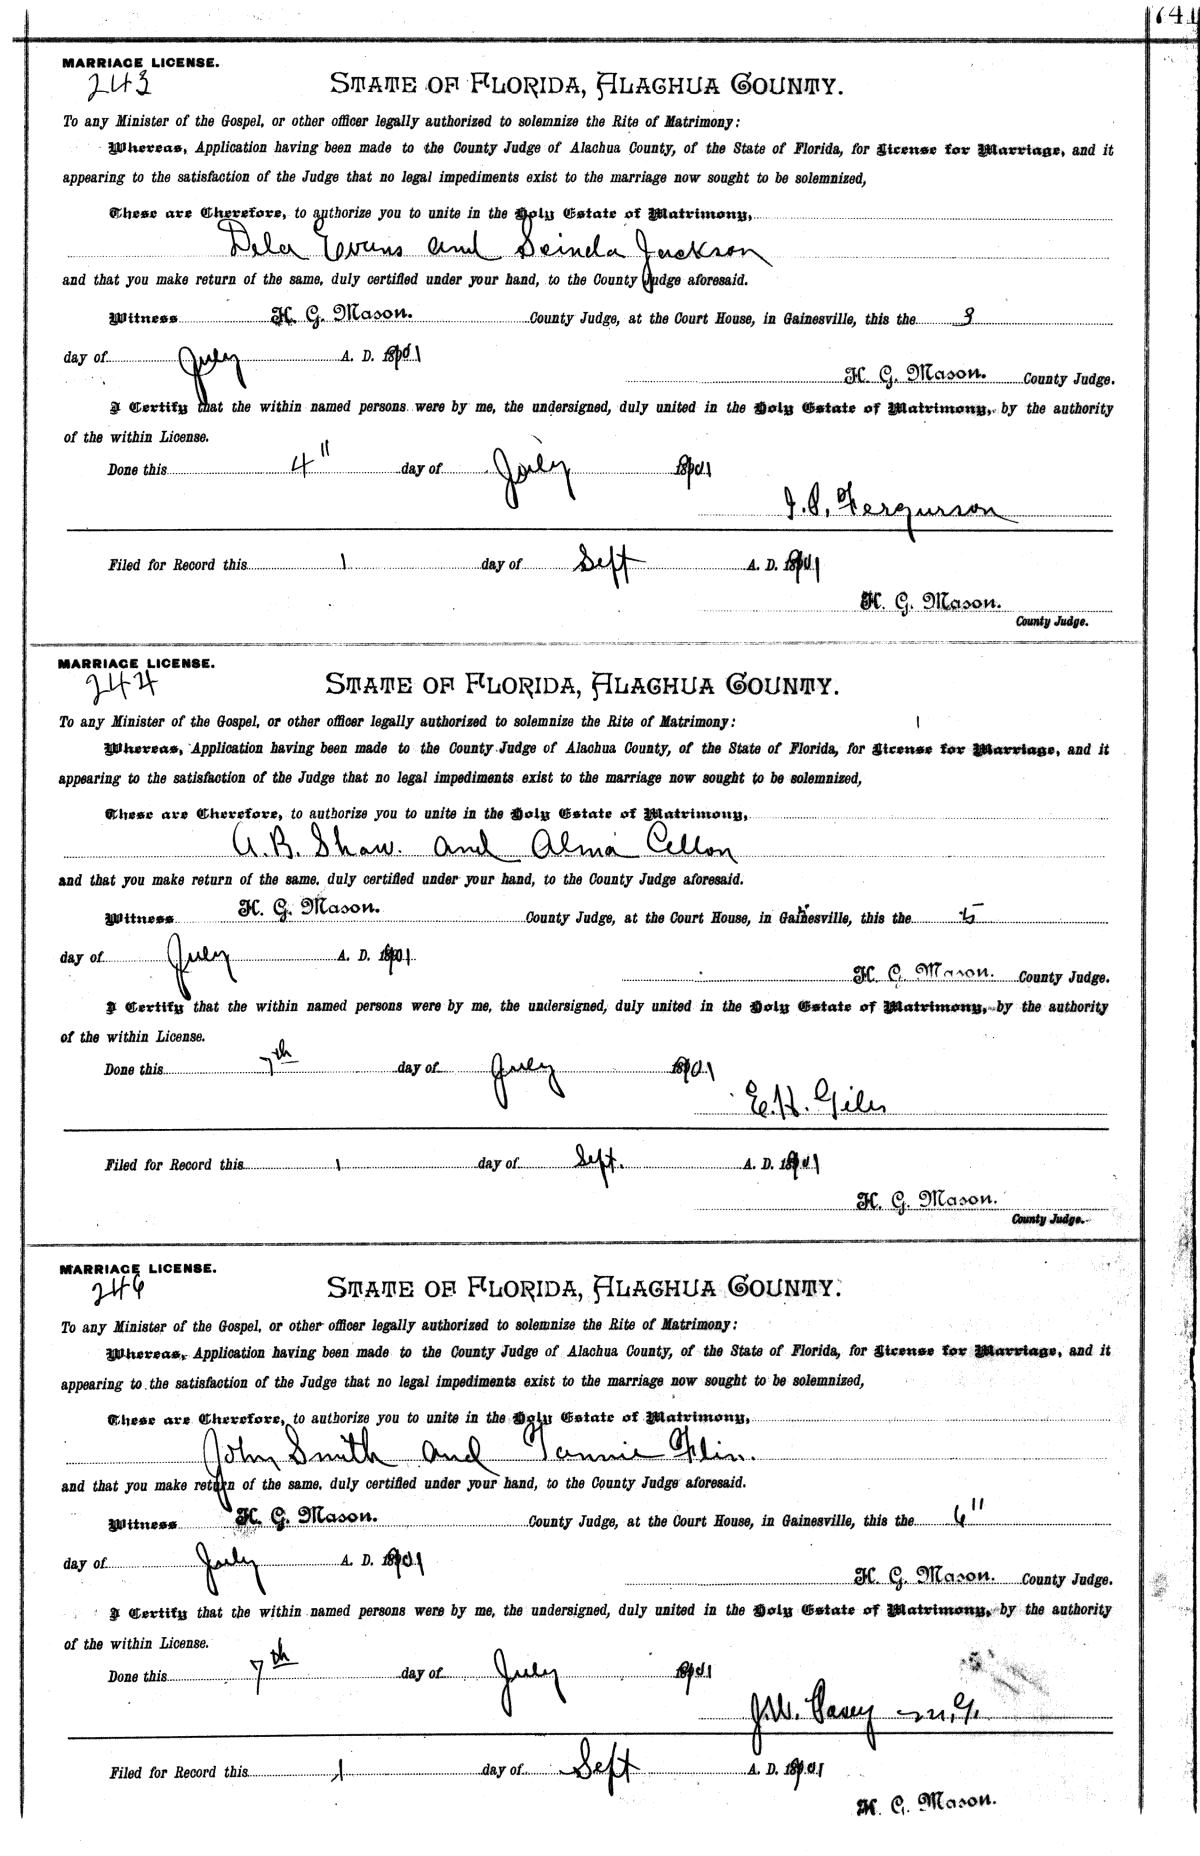 741
MARRIAGE LICENSE.
243
STATE OF FLORIDA, ALACHUA COUNTY.
To any Minister of the Gospel, or other officer legally authorized to solemnize the Rite of Matrimony:
Whereas, Application having been made to the County Judge of Alachua County, of the State of Florida, for License for Marriage, and it
appearing to the satisfaction of the Judge that no legal impediments exist to the marriage now sought to be solemnized,
These are Therefore, to authorize you to unite in the Holy Estate of Matrimony,
Dela Evans and Seinda Jackson
and that you make return of the same, duly certified under your hand, to the County Judge aforesaid.
Witness H. G. Mason. County Judge, at the Court House, in Gainesville, this the 3
day of July A. D. 1901
H. G. Mason. County Judge.
I Certify that the within named persons were by me, the undersigned, duly united in the Holy Estate of Matrimony, by the authority
of the within License.
Done this 4" day of July 1901
J. S. Fergurson
Filed for Record this 1 day of Sept A. D. 1901
H. G. Mason.
County Judge.
MARRIAGE LICENSE.
244
STATE OF FLORIDA, ALACHUA COUNTY.
To any Minister of the Gospel, or other officer legally authorized to solemnize the Rite of Matrimony:
Whereas, Application having been made to the County Judge of Alachua County, of the State of Florida, for License for Marriage, and it
appearing to the satisfaction of the Judge that no legal impediments exist to the marriage now sought to be solemnized,
These are Therefore, to authorize you to unite in the Holy Estate of Matrimony,
A. B. Shaw. and Alma Cellon
and that you make return of the same, duly certified under your hand, to the County Judge aforesaid.
Witness H. G. Mason. County Judge, at the Court House, in Gainesville, this the 5
day of July A. D. 1901
H. G. Mason. County Judge.
I Certify that the within named persons were by me, the undersigned, duly united in the Holy Estate of Matrimony, by the authority
of the within License.
Done this 7th day of July 1901
E. H. Giles
Filed for Record this 1 day of Sept. A. D. 1901
H. G. Mason.
County Judge.
MARRIAGE LICENSE.
246
STATE OF FLORIDA, ALACHUA COUNTY.
To any Minister of the Gospel, or other officer legally authorized to solemnize the Rite of Matrimony:
Whereas, Application having been made to the County Judge of Alachua County, of the State of Florida, for License for Marriage, and it
appearing to the satisfaction of the Judge that no legal impediments exist to the marriage now sought to be solemnized,
These are Therefore, to authorize you to unite in the Holy Estate of Matrimony,
John Smith and Fannie Flin.
and that you make return of the same, duly certified under your hand, to the County Judge aforesaid.
Witness H. G. Mason. County Judge, at the Court House, in Gainesville, this the 6"
day of July A. D. 1901
H. G. Mason. County Judge.
I Certify that the within named persons were by me, the undersigned, duly united in the Holy Estate of Matrimony, by the authority
of the within License.
Done this 7th day of July 1901
J. W. M. G.
Filed for Record this 1 day of Sept A. D. 1901
H. G. Mason.